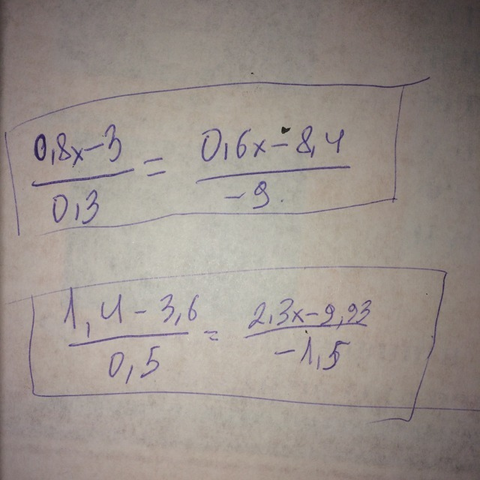 0,8x-3 / 0,3 = 0,6x-8,4 / -9
1,4-3,6 / 0,5 = 2,3x-9,93 / -1,5